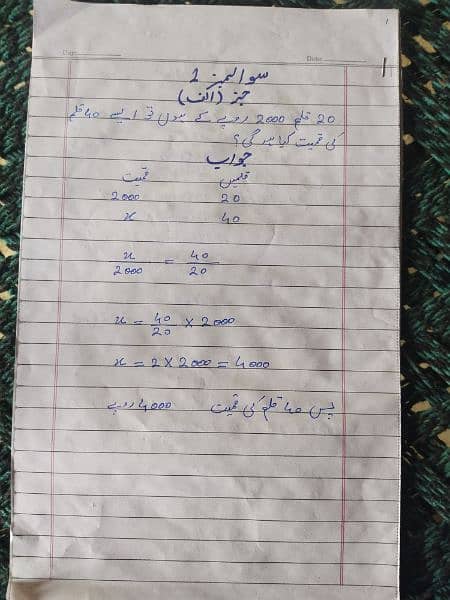 1
Date:
سوال نمبر 1
جز (الف)
20 قلم 2000 روپے کے ہوں تو ایسے 40 قلم
کی قیمت کیا ہو گی؟
جواب
قلمیں قیمت
20 2000
40 x
x/2000 = 40/20
x = 40/20 × 2000
x = 2 × 2000 = 4000
پس 40 قلم کی قیمت 4000 روپے